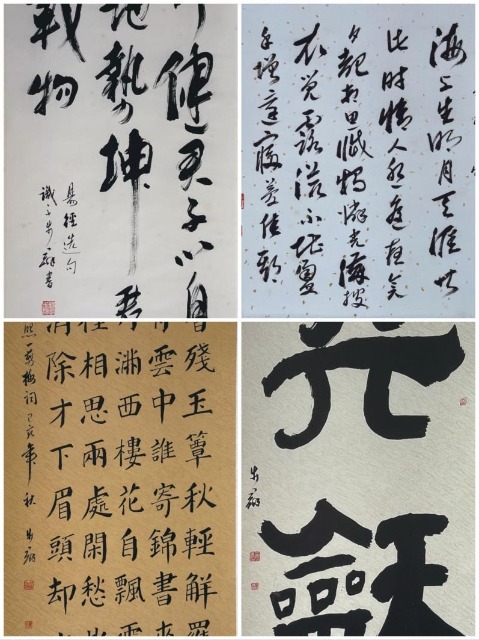 健君子以自
地勢坤君
載物
易經造句
海上生明月天涯共
此時情人怨遙夜竟
夕起相思滅燭憐光滿披
衣覺露滋不堪盈
手贈還寢夢佳期
香殘玉簟秋輕解羅
雲中誰寄錦書來
月滿西樓花自飄零
種相思兩處閑愁
消除才下眉頭却
照一剪梅詞己亥年秋
龢